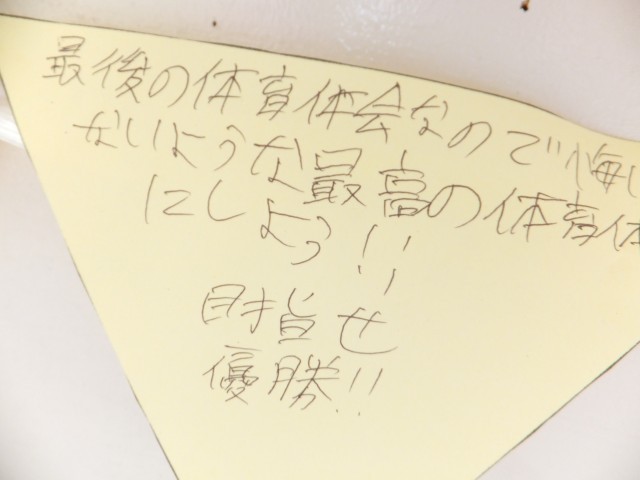 最後の体育体会なので悔し
ないような最高の体育体
にしよう!!
目指せ
優勝!!